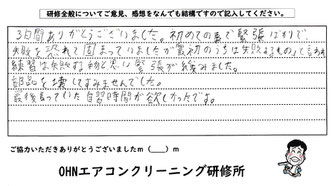 研修全般についてご意見、感想をなんでも結構ですので記入してください。
3日間ありがとうございました。初めての事で緊張ばかりで
失敗を恐れて固まっていましたが最初のうちは失敗するものって言われ
練習は失敗する物と思い緊張が緩みました。
部品を壊してすみませんでした。
最後まっていた自習時間が欲しかったです。
ご協力いただきありがとうございましたm(__)m
OHNエアコンクリーニング研修所